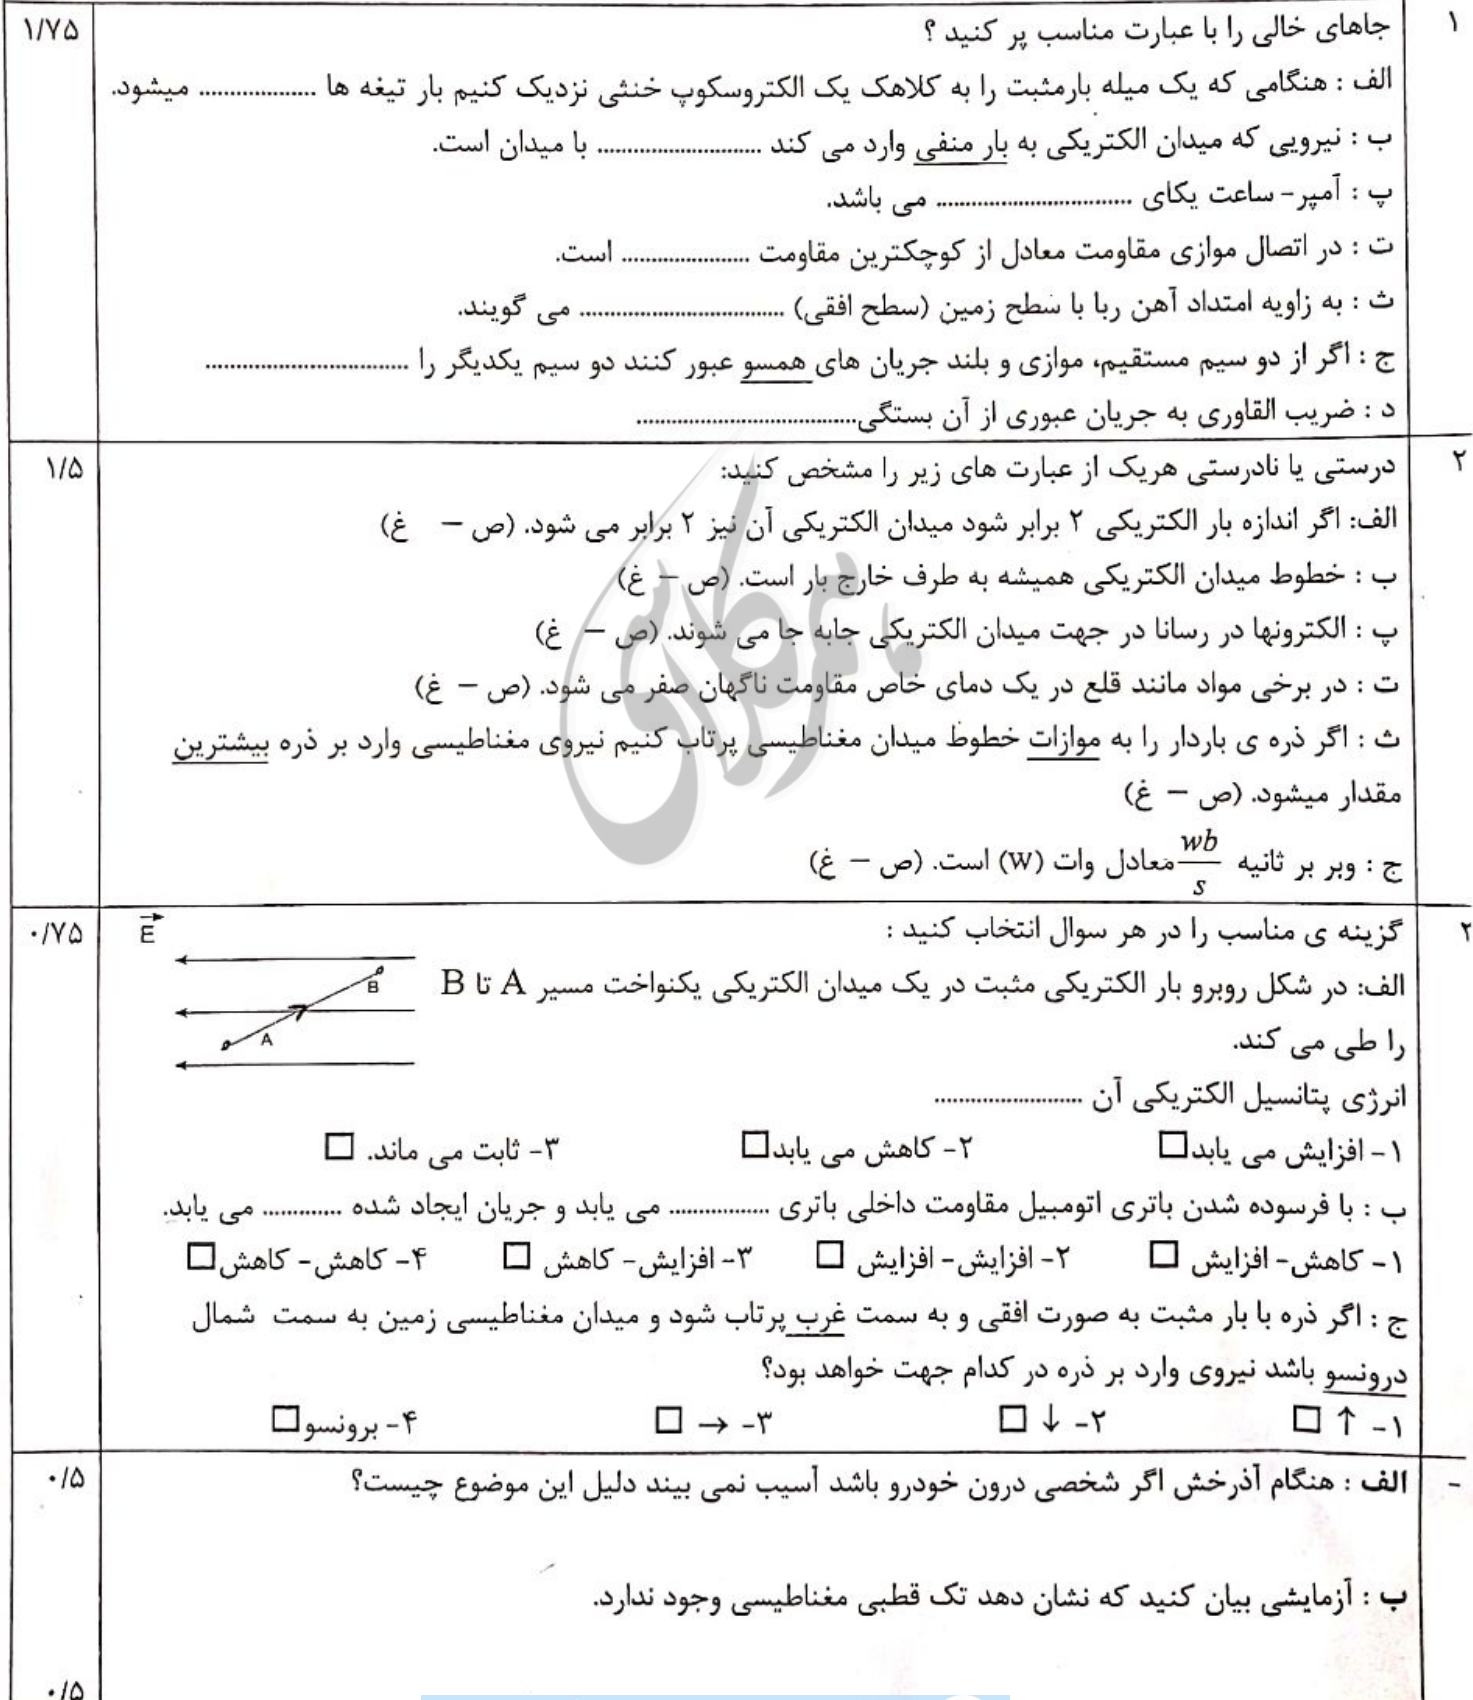 ۱ جاهای خالی را با عبارت مناسب پر کنید ؟ ۱/۷۵
الف : هنگامی که یک میله بارمثبت را به کلاهک یک الکتروسکوپ خنثی نزدیک کنیم بار تیغه ها .................... میشود.
ب : نیرویی که میدان الکتریکی به بار منفی وارد می کند ............................ با میدان است.
پ : آمپر- ساعت یکای ................................. می باشد.
ت : در اتصال موازی مقاومت معادل از کوچکترین مقاومت ...................... است.
ث : به زاویه امتداد آهن ربا با سطح زمین (سطح افقی) ................................... می گویند.
ج : اگر از دو سیم مستقیم، موازی و بلند جریان های همسو عبور کنند دو سیم یکدیگر را ...................................
د : ضریب القاوری به جریان عبوری از آن بستگی.....................................
۲ درستی یا نادرستی هریک از عبارت های زیر را مشخص کنید: ۱/۵
الف: اگر اندازه بار الکتریکی ۲ برابر شود میدان الکتریکی آن نیز ۲ برابر می شود. (ص – غ)
ب : خطوط میدان الکتریکی همیشه به طرف خارج بار است. (ص – غ)
پ : الکترونها در رسانا در جهت میدان الکتریکی جابه جا می شوند. (ص – غ)
ت : در برخی مواد مانند قلع در یک دمای خاص مقاومت ناگهان صفر می شود. (ص – غ)
ث : اگر ذره ی باردار را به موازات خطوط میدان مغناطیسی پرتاب کنیم نیروی مغناطیسی وارد بر ذره بیشترین
مقدار میشود. (ص – غ)
ج : وبر بر ثانیه wb/s معادل وات (W) است. (ص – غ)
۲ گزینه ی مناسب را در هر سوال انتخاب کنید : ۰/۷۵
E
الف: در شکل روبرو بار الکتریکی مثبت در یک میدان الکتریکی یکنواخت مسیر A تا B
B
A
را طی می کند.
انرژی پتانسیل الکتریکی آن .........................
۱- افزایش می یابد□ ۲- کاهش می یابد□ ۳- ثابت می ماند. □
ب : با فرسوده شدن باتری اتومبیل مقاومت داخلی باتری ................. می یابد و جریان ایجاد شده ............. می یابد.
۱- کاهش- افزایش □ ۲- افزایش- افزایش □ ۳- افزایش- کاهش □ ۴- کاهش- کاهش□
ج : اگر ذره با بار مثبت به صورت افقی و به سمت غرب پرتاب شود و میدان مغناطیسی زمین به سمت شمال
درونسو باشد نیروی وارد بر ذره در کدام جهت خواهد بود؟
۱- ↑ □ ۲- ↓ □ ۳- → □ ۴- برونسو□
- الف : هنگام آذرخش اگر شخصی درون خودرو باشد آسیب نمی بیند دلیل این موضوع چیست؟ ۰/۵
ب : آزمایشی بیان کنید که نشان دهد تک قطبی مغناطیسی وجود ندارد.
۰/۵